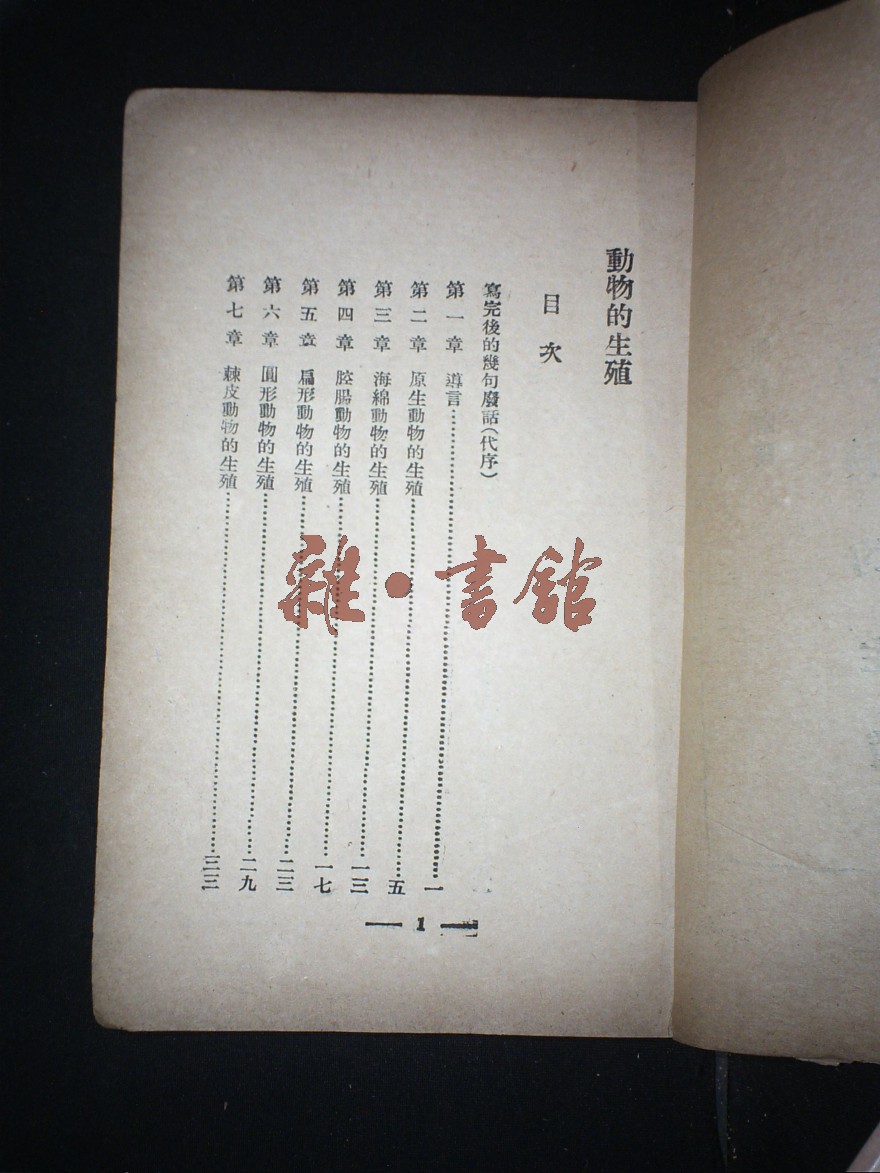 動物的生殖
目次
寫完後的幾句廢話(代序)
第一章 導言……一
第二章 原生動物的生殖……五
第三章 海綿動物的生殖……一三
第四章 腔腸動物的生殖……一七
第五章 扁形動物的生殖……二三
第六章 圓形動物的生殖……二九
第七章 棘皮動物的生殖……三三
1
雜·書館